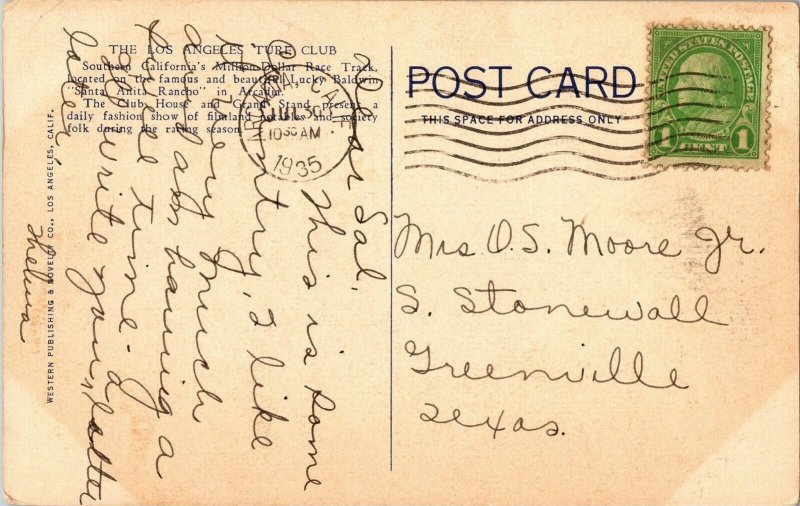 THE LOS ANGELES TURF CLUB
Southern California's Million Dollar Race Track,
located on the famous and beautiful Lucky Baldwin
"Santa Anita Rancho" in Arcadia.
The Club House and Grand Stand present a
daily fashion show of filmland notables and society
folk during the racing season.
WESTERN PUBLISHING & NOVELTY CO., LOS ANGELES, CALIF.
POST CARD
THIS SPACE FOR ADDRESS ONLY
10 30 AM
1935
UNITED STATES POSTAGE
1 1
CENT
Dear Sal,
This is some
country, I like
it very much
and am having a
fine time.
Will write you
later,
Thelma
Mrs O. S. Moore Jr.
S. Stonewall
Greenville
Texas.